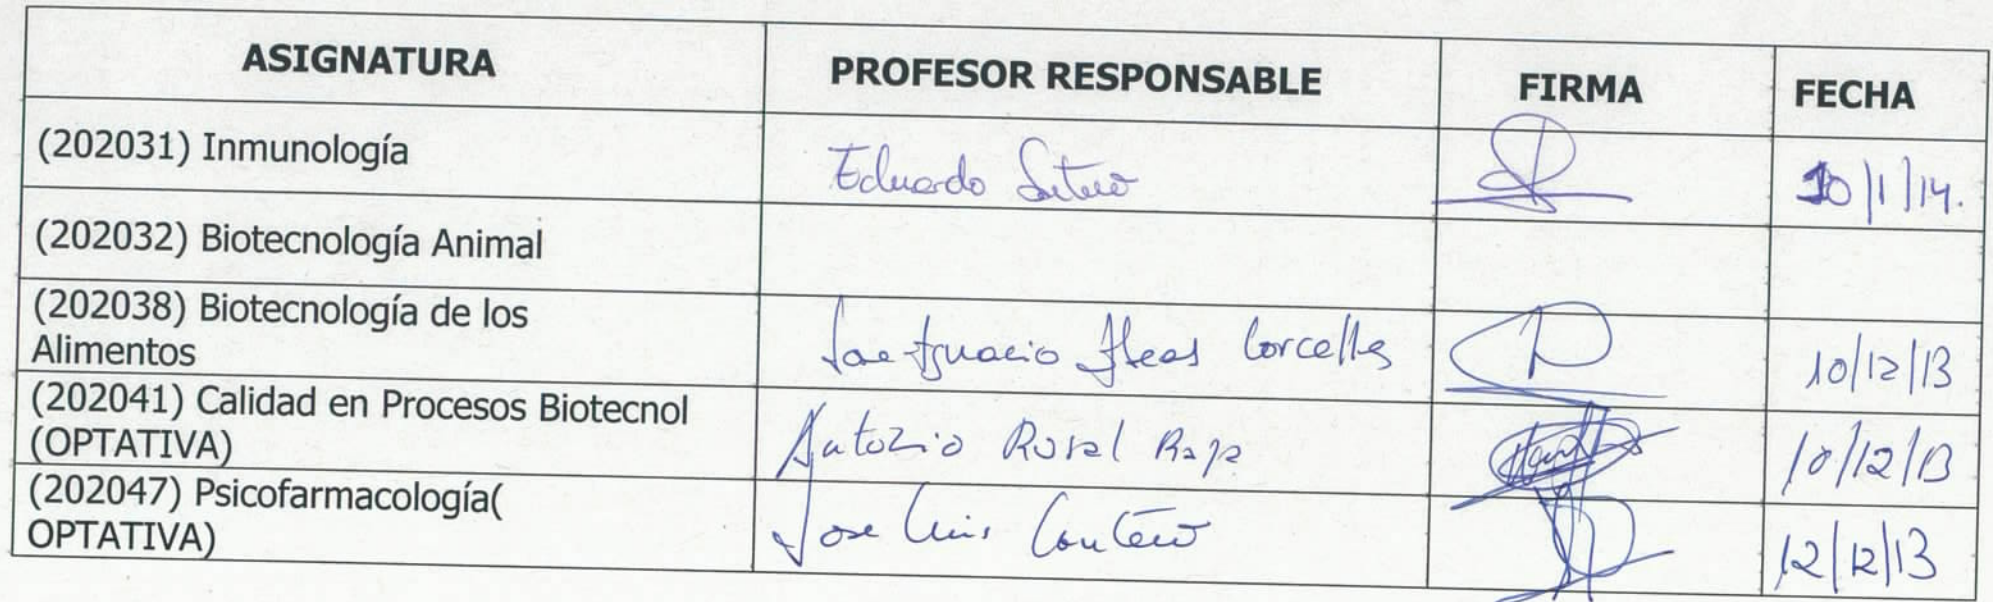 ASIGNATURA PROFESOR RESPONSABLE FIRMA FECHA
(202031) Inmunología Eduardo 10/1/14.
(202032) Biotecnología Animal
(202038) Biotecnología de los
Alimentos Jose Ignacio 10/12/13
(202041) Calidad en Procesos Biotecnol
(OPTATIVA) Antonio Rosal 10/12/13
(202047) Psicofarmacología(
OPTATIVA) Jose Luis 12/12/13